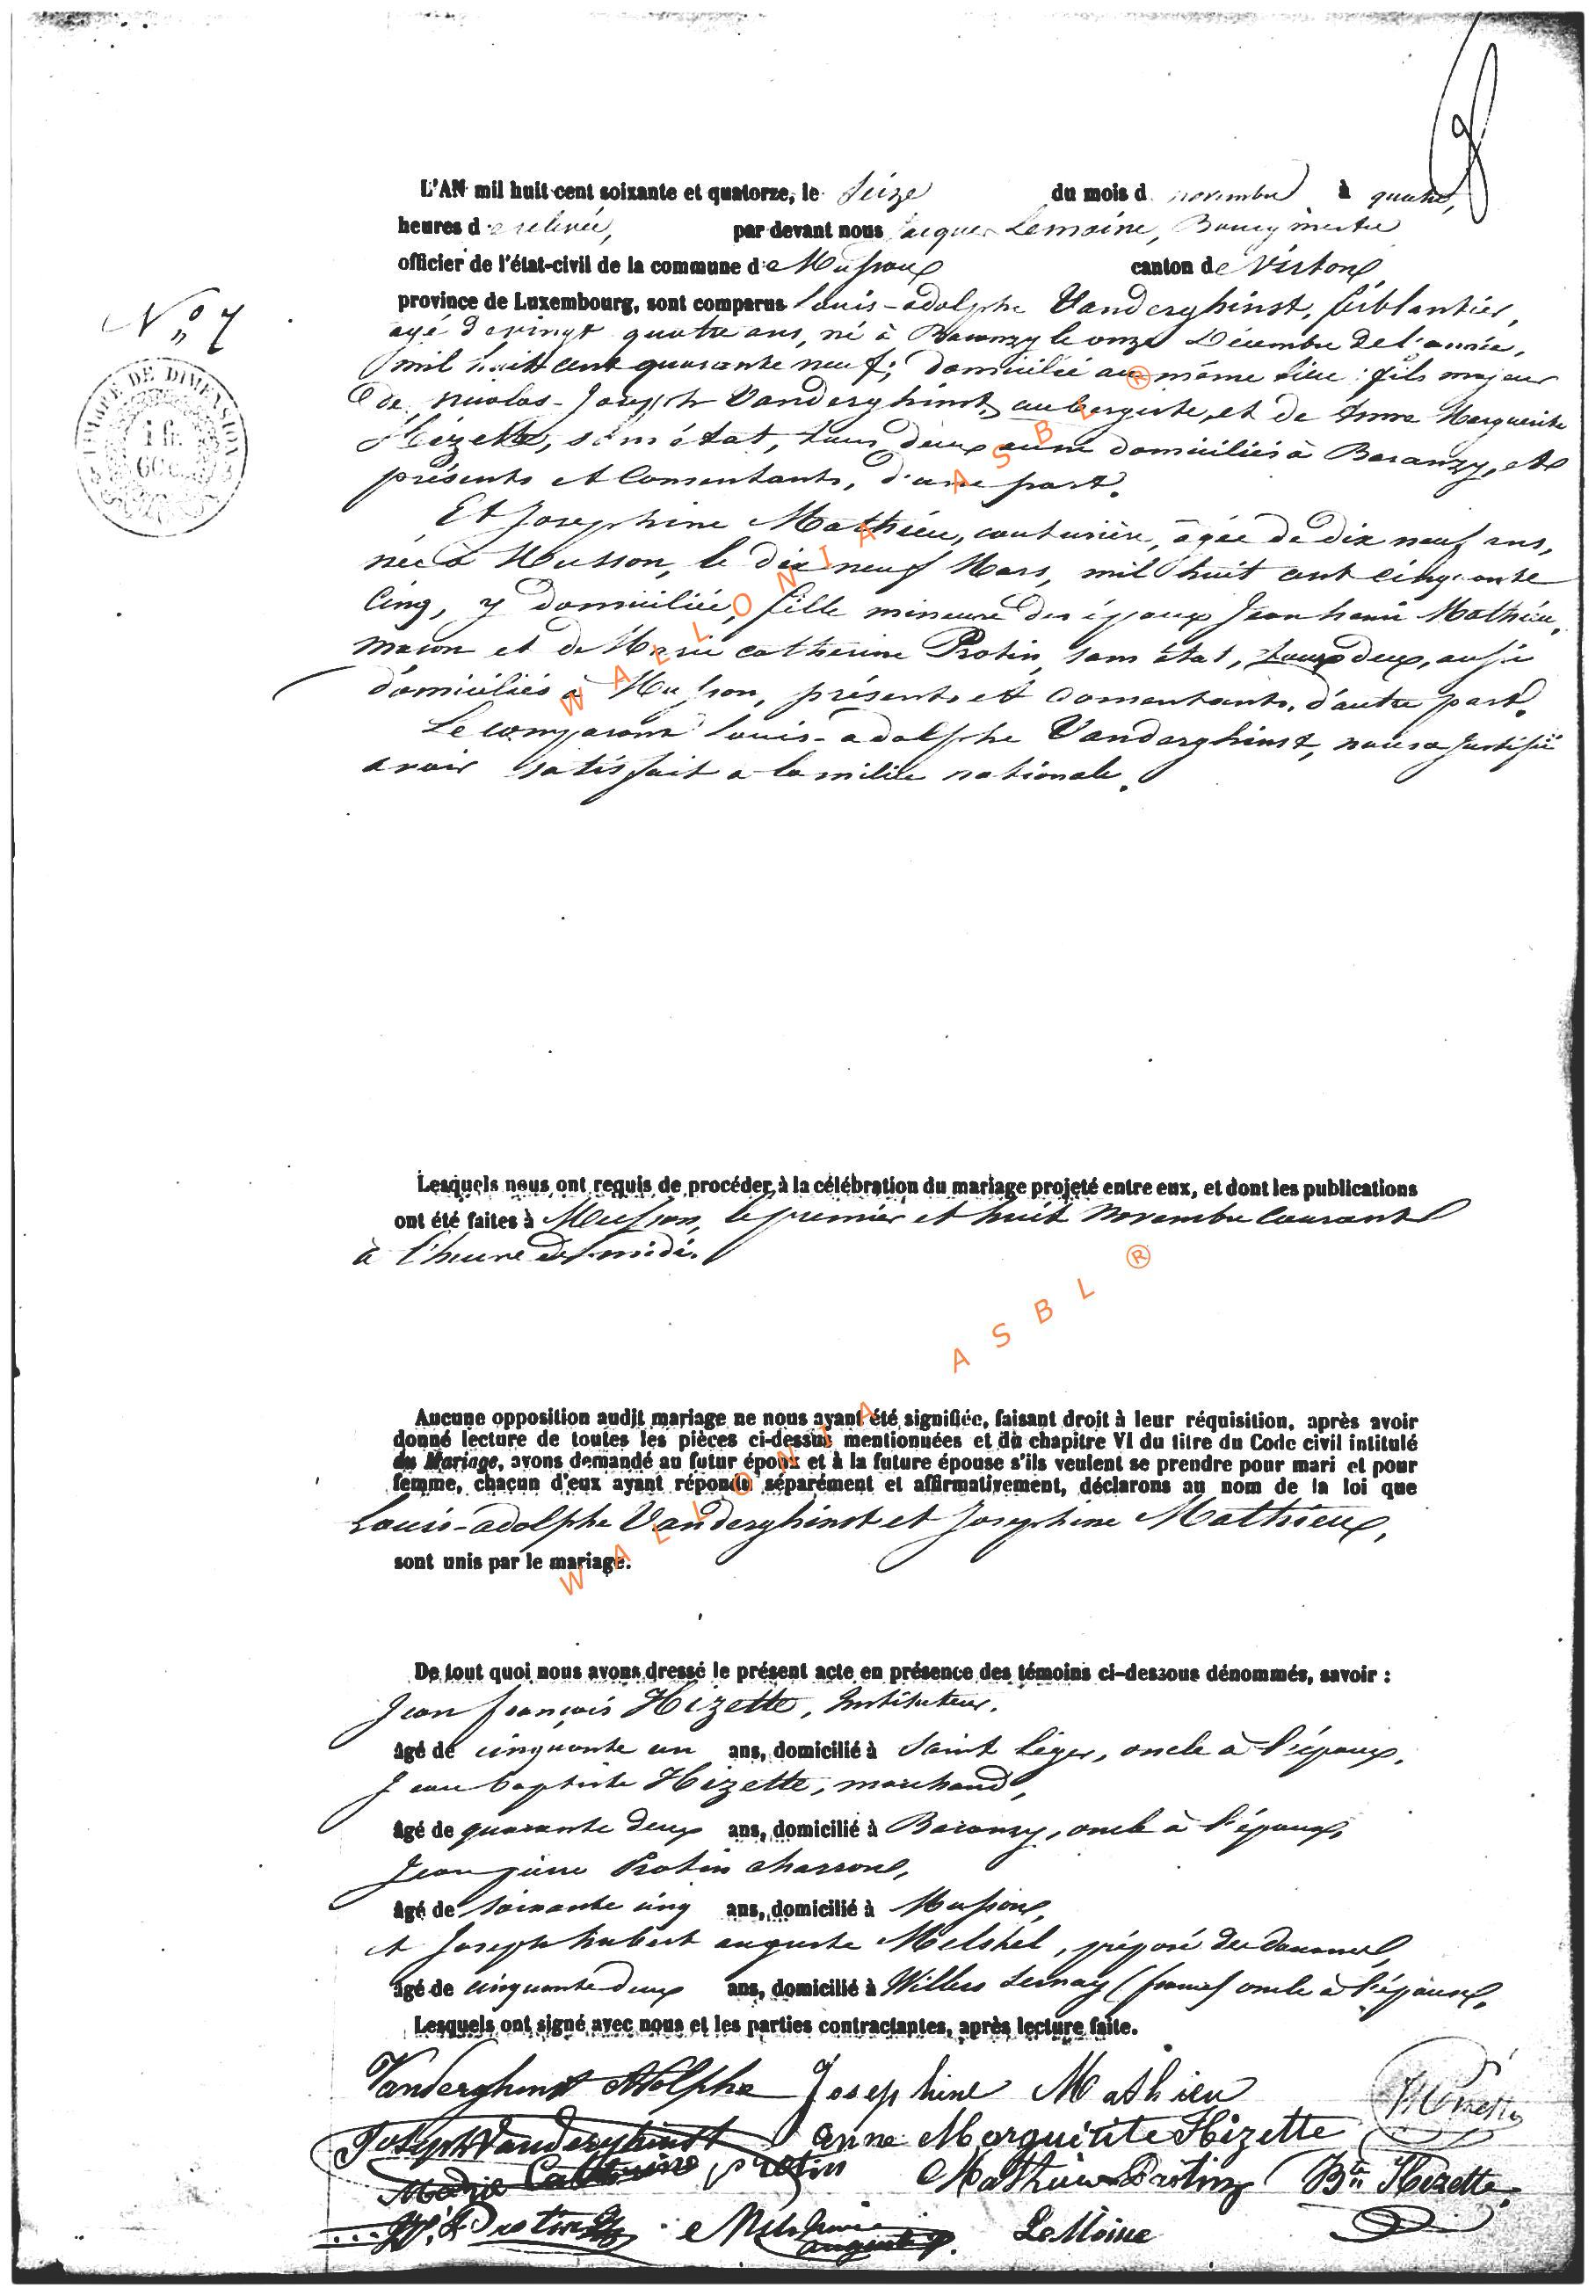 L'AN mil huit cent soixante et quatorze, le Seize du mois d novembre à quatre,
heures de relevée, par devant nous Jacques Lemoine, Bourgmestre
officier de l'état-civil de la commune de Musson canton de Virton
province de Luxembourg, sont comparus Louis-adolphe Vanderghinst, ferblantier,
agé de vingt quatre ans, né à Baranzy le onze Décembre de l'année,
mil huit cent quarante neuf; domicilié au même lieu: fils majeur
de nicolas-Joseph Vanderghinst, aubergiste, et de Anne Marguerite
Hizette, sans état, tous deux aussi domiciliés à Baranzy, et
présents et Consentants, d'une part.
Et Josephine Mathieu, couturière, âgée de dix neuf ans,
née à Musson, le dix neuf Mars, mil huit cent cinquante
Cinq, y domiciliée, fille mineure des époux Jean henri Mathieu,
maçon et de Marie catherine Protin, sans état, tous deux, aussi
domiciliés à Musson, présents et Consentants, d'autre part.
Le comparant Louis-adolphe Vanderghinst, nous a justifié
avoir satisfait a la milice nationale.
N° 7
TIMBRE DE DIMENSION
1 fr.
60 c.
Lesquels nous ont requis de procéder à la célébration du mariage projeté entre eux, et dont les publications
ont été faites à Musson, le premier et huit Novembre Courant
à l'heure de midi.
Aucune opposition audit mariage ne nous ayant été signifiée, faisant droit à leur réquisition, après avoir
donné lecture de toutes les pièces ci-dessus mentionnées et du chapitre VI du titre du Code civil intitulé
du Mariage, avons demandé au futur époux et à la future épouse s'ils veulent se prendre pour mari et pour
femme, chacun d'eux ayant répondu séparément et affirmativement, déclarons au nom de la loi que
Louis-adolphe Vanderghinst et Josephine Mathieu,
sont unis par le mariage.
De tout quoi nous avons dressé le présent acte en présence des témoins ci-dessous dénommés, savoir :
Jean françois Hizette, Instituteur.
âgé de cinquante un ans, domicilié à Saint Léger, oncle à l'époux,
Jean baptiste Hizette, marchand,
âgé de quarante deux ans, domicilié à Baranzy, oncle à l'époux,
Jean pierre Protin charron,
âgé de soixante cinq ans, domicilié à Musson,
et Joseph hubert auguste Melchel, préposé des douanes,
âgé de cinquante deux ans, domicilié à Willers (france) oncle à l'épouse.
Lesquels ont signé avec nous et les parties contractantes, après lecture faite.
Vanderghinst Adolphe Josephine Mathieu
Joseph Vanderghinst Anne Marguerite Hizette
Marie Catherine Protin Mathieu Protin Bte Hizette
J. P. Protin Auguste LeMoine
WALLONIA ASBL ®
WALLONIA ASBL ®